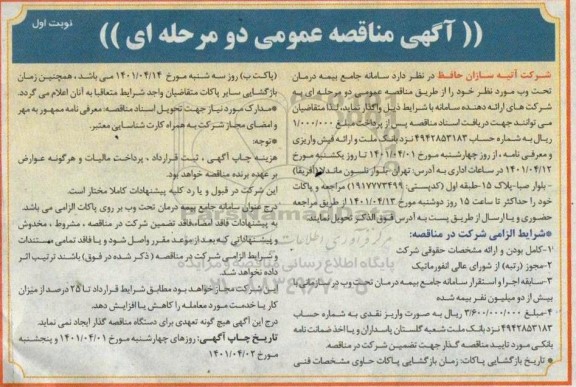 نوبت اول
(( آگهی مناقصه عمومی دو مرحله ای ))
شرکت آتیه سازان حافظ در نظر دارد سامانه جامع بیمه درمان
تحت وب مورد نظر خود را از طریق مناقصه عمومی دو مرحله ای به
شرکت های ارائه دهنده سامانه با شرایط ذیل واگذار نماید، لذا متقاضیان
می توانند جهت دریافت اسناد مناقصه پس از پرداخت مبلغ ۱/۰۰۰/۰۰۰
ریال به شماره حساب ۴۹۴۲۸۵۳۱۸۳ نزد بانک ملت و ارائه فیش واریزی
و معرفی نامه، از روز چهارشنبه مورخ ۱۴۰۱/۰۴/۰۱ تا روز یکشنبه مورخ
۱۴۰۱/۰۴/۱۲ در ساعات اداری به آدرس: تهران- بلوار نلسون ماندلا (آفریقا)
- بلوار صبا- پلاک ۱۵ طبقه اول (کدپستی: ۱۹۱۷۷۷۳۴۹۹) مراجعه و پاکات
خود را حداکثر تا ساعت ۱۵ روز دوشنبه مورخ ۱۴۰۱/۰۴/۱۳ از طریق مراجعه
حضوری و یا ارسال از طریق پست به آدرس فوق الذکر تحویل نمایند.
*شرایط الزامی شرکت در مناقصه:
۱-کامل بودن و ارائه مشخصات حقوقی شرکت
۲-مجوز (رتبه) از شورای عالی انفورماتیک
۳-سابقه اجرا و استقرار سامانه جامع بیمه درمان تحت وب در سازمانهای
بیش از دو میلیون نفر بیمه شده
۴-مبلغ ۳/۶۰۰/۰۰۰/۰۰۰ ریال به صورت واریز نقدی به شماره حساب
۴۹۴۲۸۵۳۱۸۳ نزد بانک ملت شعبه گلستان پاسداران و یا اخذ ضمانت نامه
بانکی مورد تایید مناقصه گذار جهت تضمین شرکت در مناقصه.
* تاریخ بازگشایی پاکات: زمان بازگشایی پاکات حاوی مشخصات فنی
(پاکت ب) روز سه شنبه مورخ ۱۴۰۱/۰۴/۱۴ می باشد، همچنین زمان
بازگشایی سایر پاکات متقاضیان واجد شرایط متعاقبا به آنان اعلام می گردد.
*مدارک مورد نیاز جهت تحویل اسناد مناقصه: معرفی نامه ممهور به مهر
و امضای مجاز شرکت به همراه کارت شناسایی معتبر.
*توجه:
هزینه چاپ آگهی، ثبت قرارداد، پرداخت مالیات و هرگونه عوارض
بر عهده برنده مناقصه خواهد بود.
این شرکت در قبول و یا رد کلیه پیشنهادات کاملا مختار است.
درج عنوان سامانه جامع بیمه درمان تحت وب بر روی پاکات الزامی می باشد.
به پیشنهادات فاقد امضا، فاقد تضمین شرکت در مناقصه، مشروط، مخدوش
و پیشنهاداتی که بعد از موعد مقرر واصل شود و یا فاقد تمامی مستندات
و شرایط الزامی شرکت در مناقصه (ذکر شده در فوق) باشند ترتیب اثر
داده نخواهد شد.
این شرکت مجاز خواهد بود مطابق شرایط قرارداد تا ۲۵ درصد از میزان
کار یا خدمت مورد معامله را کاهش یا افزایش دهد.
درج این آگهی هیچ گونه تعهدی برای دستگاه مناقصه گذار ایجاد نمی نماید.
تاریخ چاپ آگهی: روزهای چهارشنبه مورخ ۱۴۰۱/۰۴/۰۱ و پنجشنبه
مورخ ۱۴۰۱/۰۴/۰۲